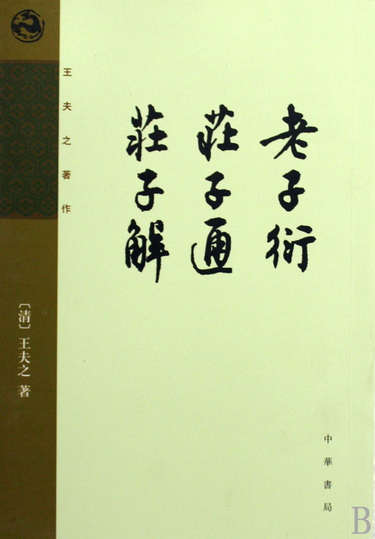 老子衍
莊子通
莊子解
王夫之著作
〔清〕王夫之 著
中華書局
B